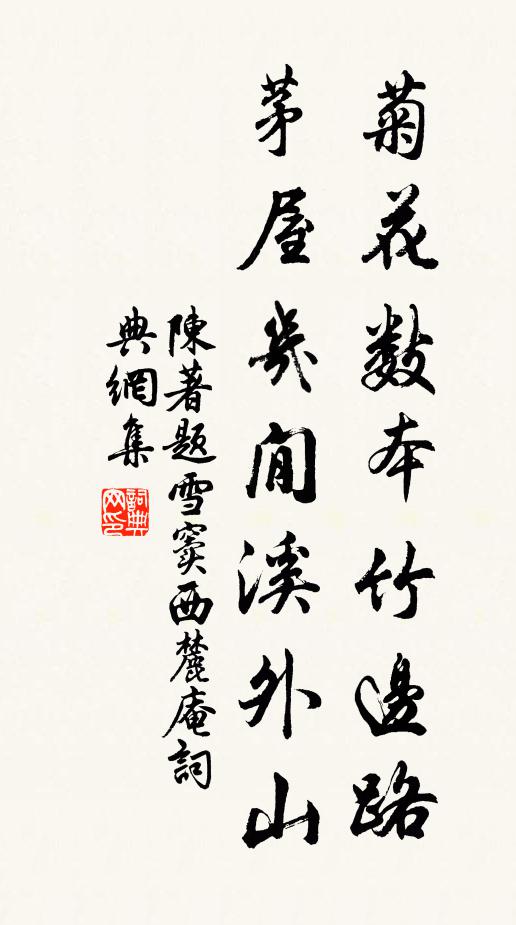 菊花數本竹邊路
茅屋幾間溪外山
陳著題雪竇西麓庵詞
典網集
詞典網印